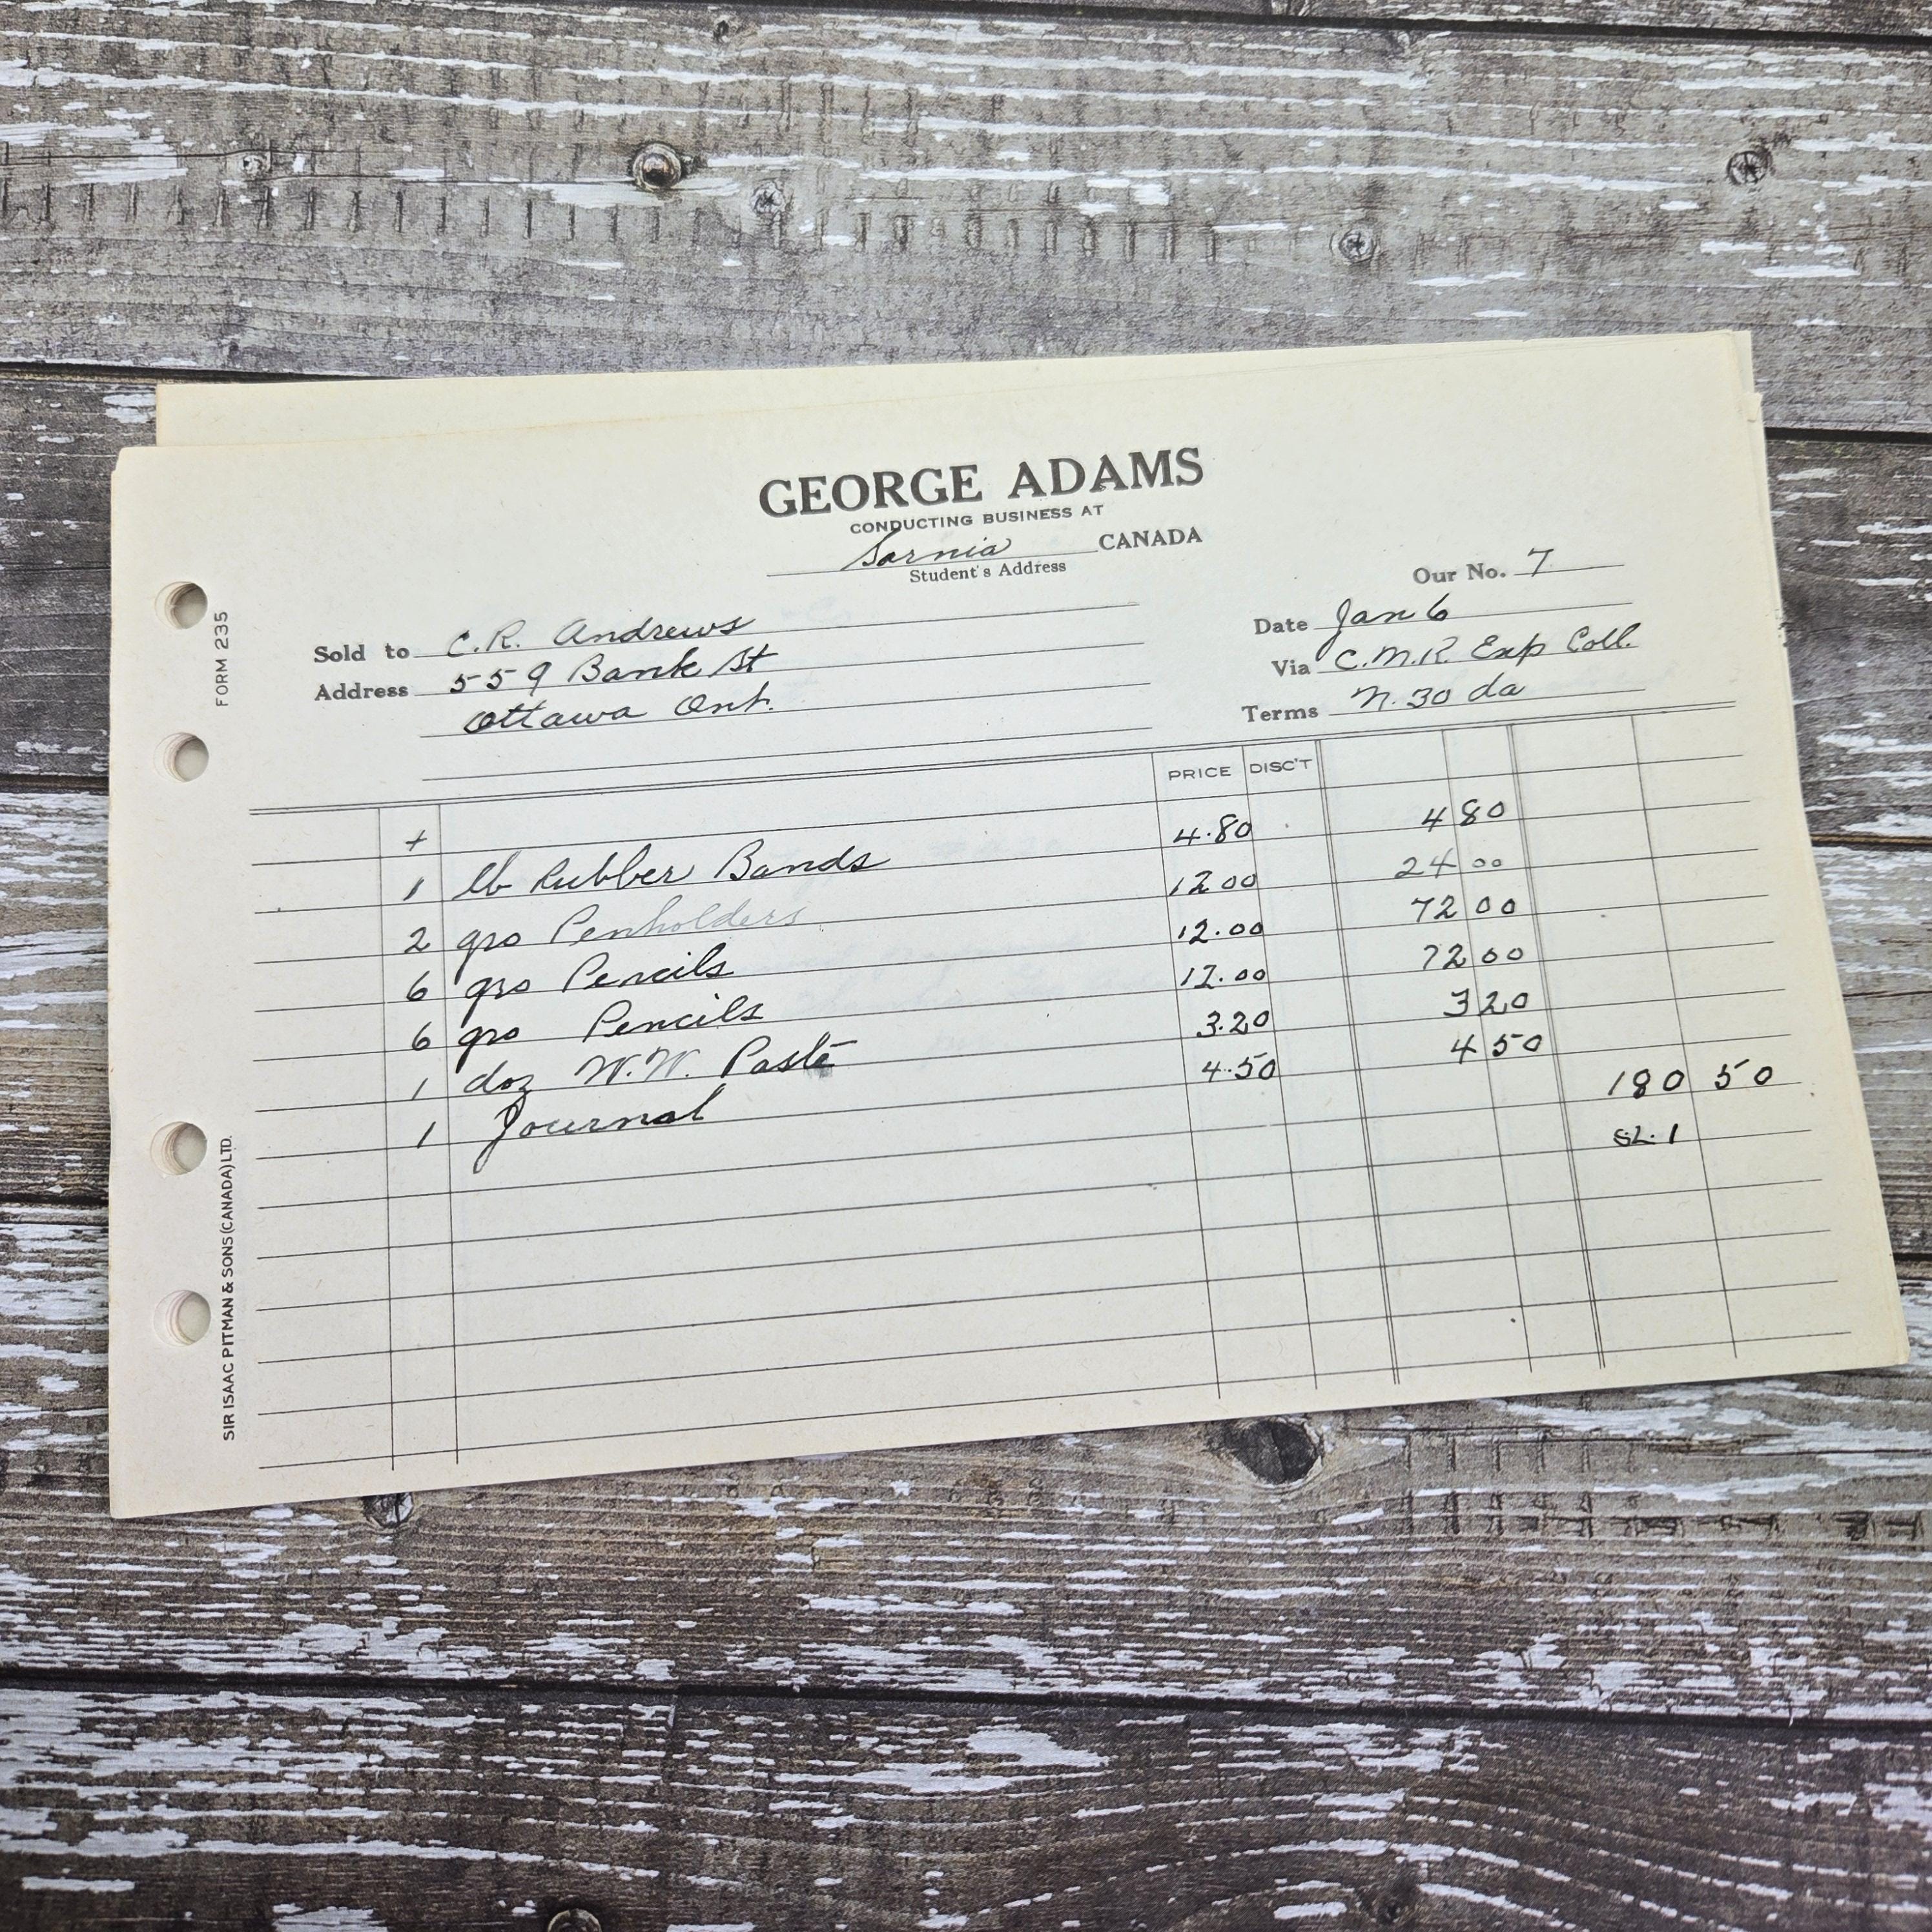 GEORGE ADAMS
CONDUCTING BUSINESS AT
Sarnia CANADA
Student's Address
Our No. 7
Sold to C.R. Andrews
Address 559 Bank St
Ottawa Ont.
Date Jan 6
Via C.M.R. Exp Coll.
Terms N. 30 da
PRICE DISC'T
+
1 lb Rubber Bands 4.80 4 80
2 gro Penholders 12 00 24 00
6 gro Pencils 12.00 72 00
6 gro Pencils 12.00 72 00
1 doz W.W. Paste 3.20 3 20
1 Journal 4.50 4 50
180 50
SL. 1
FORM 235
SIR ISAAC PITMAN & SONS (CANADA) LTD.